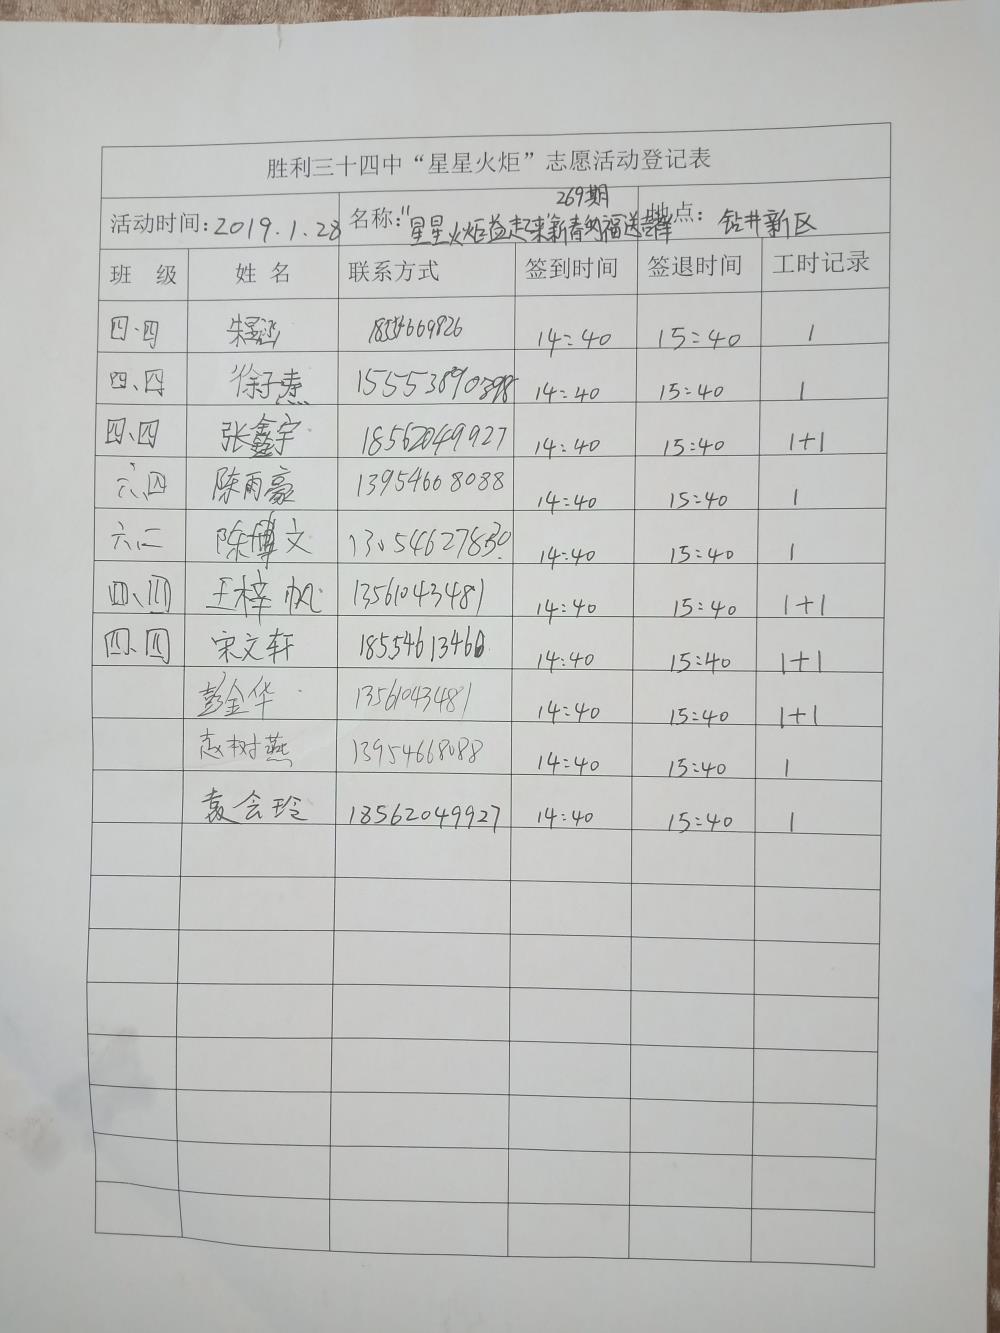 胜利三十四中“星星火炬”志愿活动登记表
269期
活动时间:2019.1.28 名称:"星星火炬益起来"新春纳福送吉祥 地点: 钻井新区
班 级 姓 名 联系方式 签到时间 签退时间 工时记录
四.四 朱 18554669826 14:40 15:40 1
四、四 徐子焘 15553890398 14:40 15:40 1
四、四 张鑫宇 18562049927 14:40 15:40 1+1
六、四 陈雨豪 13954668088 14:40 15:40 1
六二 陈博文 13054627830 14:40 15:40 1
四、四 王梓帆 13561043481 14:40 15:40 1+1
四、四 宋文轩 18554613460 14:40 15:40 1+1
彭金华 13561043481 14:40 15:40 1+1
赵树燕 13954668088 14:40 15:40 1
袁会玲 18562049927 14:40 15:40 1